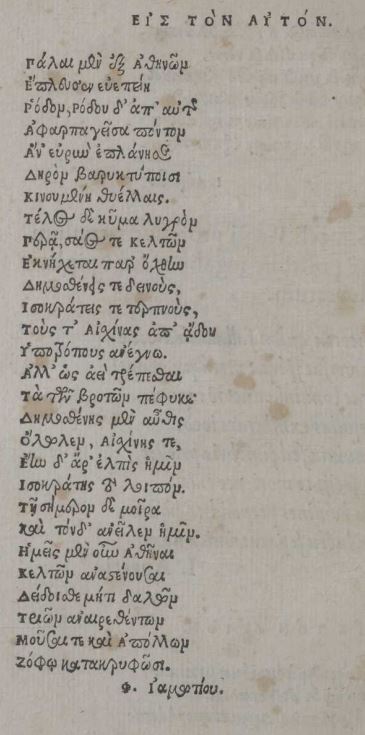 ΕΙΣ ΤΟΝ ΑΥΤΟΝ.
Πάλαι μὲν ἐξ Ἀθηνῶν
Ἔπλευσεν εὐεπείη
Ῥόδον, Ῥόδου δ' ἀπ' αὐτῆς
Ἀφαρπαγεῖσα πόντον
Ἀν' εὐρὺν ἐπλανήθη
Δηρὸν βαρυκτύποισι
Κινουμένη θυέλλαις.
Τέλος δὲ κῦμα λυγρὸν
Περᾷ, σάος τε Κελτῶν
Ἐκνήχεται παρ' ὄχθην
Δημοσθένεις τε δεινοὺς,
Ἰσοκράτεις τε τερπνοὺς,
Τοὺς τ' Αἰχίνας ἀπ' ᾅδου
ἀνέγνω.
Ἀλλ' ὡς ἀεὶ τρέπεσθαι
Τὰ τῶν βροτῶν πέφυκε
Δημοσθένης μὲν αὖθις
Ὄλωλεν, Αἰχίνης τε,
Ἔην δ' ἄρ' ἐλπὶς ἡμῖν
Ἰσοκράτης λοιπόν.
Τῇ σήμερον δὲ μοῖρα
Καὶ τόνδ' ἀνεῖλεν ἡμῖν.
Ἡμεῖς μὲν οὖν Ἀθῆναι
Κελτῶν ἀναστένουσαι
Τριῶν ἀναιρεθέντων
Μοῦσαι τε καὶ Ἀπόλλων
Ζόφῳ κατακρυφῶσι.
Φ. Ἰαμωτίου.